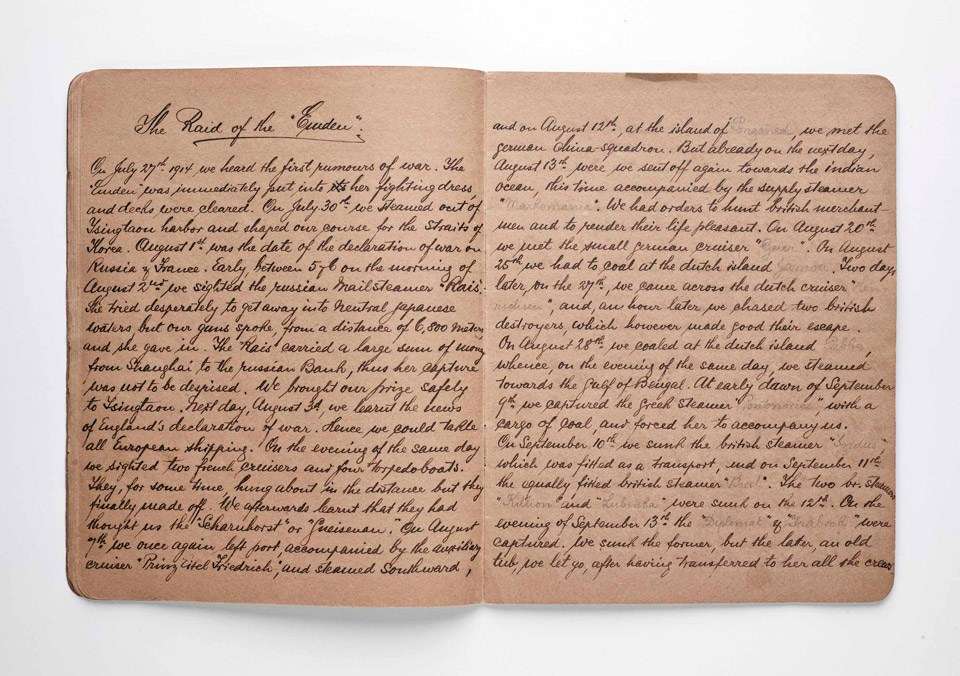 The Raid of the "Emden".
On July 27th 1914 we heard the first rumours of war. The
"Emden" was immediately put into her fighting dress
and decks were cleared. On July 30th we steamed out of
Tsingtaon harbor and shaped our course for the Straits of
Korea. August 1st was the date of the declaration of war on
Russia & France. Early, between 5 & 6 on the morning of
August 2nd, we sighted the russian Mail Steamer "Rais".
She tried desperately to get away into neutral Japanese
waters but our guns spoke, from a distance of 6,800 meters
and she gave in. The "Rais" carried a large sum of money
from Shanghai to the russian Bank, thus her capture
was not to be despised. We brought our prize safely
to Tsingtaon. Next day, August 3d, we learnt the news
of England's declaration of war. Hence we could tackle
all European shipping. On the evening of the same day
we sighted two french cruisers and four torpedoboats.
They, for some time, hung about in the distance but they
finally made off. We afterwards learnt that they had
thought us the "Scharnhorst" or "Gneisenau." On August
7th we once again left port, accompanied by the auxiliary
cruiser "Prinz Eitel Friedrich", and steamed Southward,
and on August 12th, at the island of we met the
german China-squadron. But already on the next day,
August 13th were we sent off again towards the indian
ocean, this time accompanied by the supply steamer
"Markomania". We had orders to hunt british merchant-
men and to render their life pleasant. On August 20th
we met the small german cruiser "Geier". On August
25th we had to coal at the dutch island Two days
later, on the 27th, we came across the dutch cruiser "
", and, an hour later, we chased two british
destroyers, which however made good their escape.
On August 28th we coaled at the dutch island
whence, on the evening of the same day, we steamed
towards the Gulf of Bengel. At early dawn of September
9th we captured the Greek steamer with a
cargo of coal, and forced her to accompany us.
On September 10th we sunk the british steamer "Indus",
which was fitted as a transport, and on September 11th
the equally fitted british steamer The two br. steamers
"Killion" and were sunk on the 12th. On the
evening of September 13th the "Diplomat" & "Trabboch" were
captured. We sunk the former, but the later, an old
tub, we let go, after having transferred to her all the crews